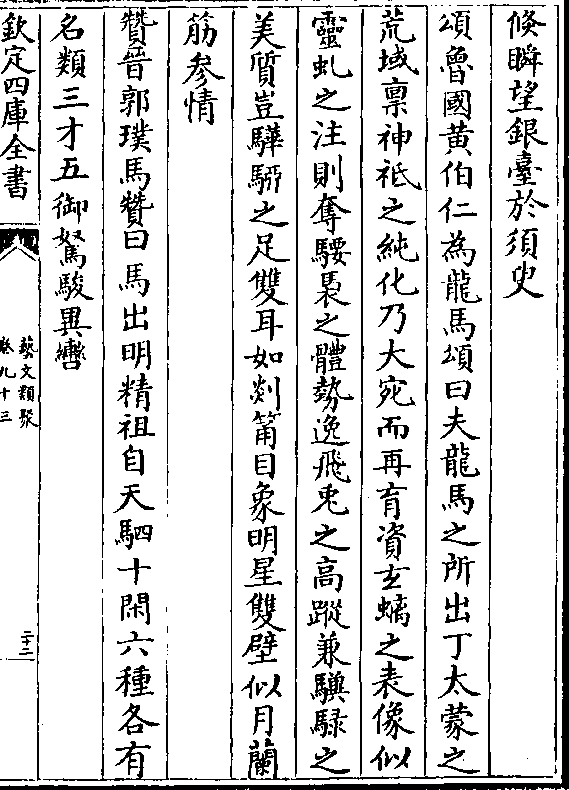 倐瞬望銀臺於須臾
頌魯國黄伯仁為龍馬頌曰夫龍馬之所出丁太蒙之
荒域禀神祗之純化乃大宛而再育資玄螭之表像似
靈虬之注則奪騕褭之體勢逸飛兎之高蹤兼驥騄之
美質豈驊騮之足雙耳如剡筩目象明星雙壁似月蘭
筋參情
贊晉郭璞馬贊曰馬出明精祖自天駟十閑六種各有
名類三才五御駑駿異轡
欽定四庫全書
藝文類聚
卷九十三
二十二